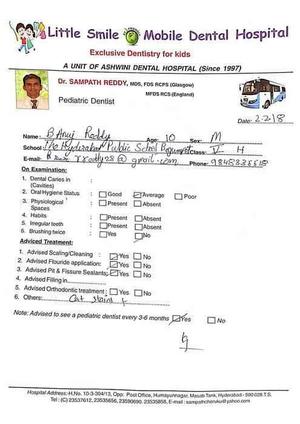 Little Smile Mobile Dental Hospital
Exclusive Dentistry for kids
A UNIT OF ASHWINI DENTAL HOSPITAL (Since 1997)
Dr. SAMPATH REDDY, MDS, FDS RCPS (Glasgow)
MFDS RCS (England)
Pediatric Dentist
Date: 2.2.18
Name: B Anuj Reddy Age: 10 Sex: M
School: The Hyderabad Public School Begumpet Class: V H
E-mail: @gmail.com Phone:
On Examination:
1. Dental Caries in (Cavities)
2. Oral Hygiene Status : Good Average Poor
3. Physiological Spaces : Present Absent
4. Habits : Present Absent
5. Irregular teeth : Present Absent
6. Brushing twice : Yes No
Advised Treatment:
1. Advised Scaling/Cleaning : Yes No
2. Advised Flouride application: Yes No
3. Advised Pit & Fissure Sealants: Yes No
4. Advised Filling in
5. Advised Orthodontic treatment : Yes No
6. Others:
Note: Advised to see a pediatric dentist every 3-6 months Yes No
Hospital Address:-H.No. 10-3-304/13, Opp: Post Office, Humayunnagar, Masab Tank, Hyderabad - 500 028 T.S.
Tel: (C) 23537612, 23535656, 23590690, 23535858, E-mail : sampathcheruku@yahoo.com